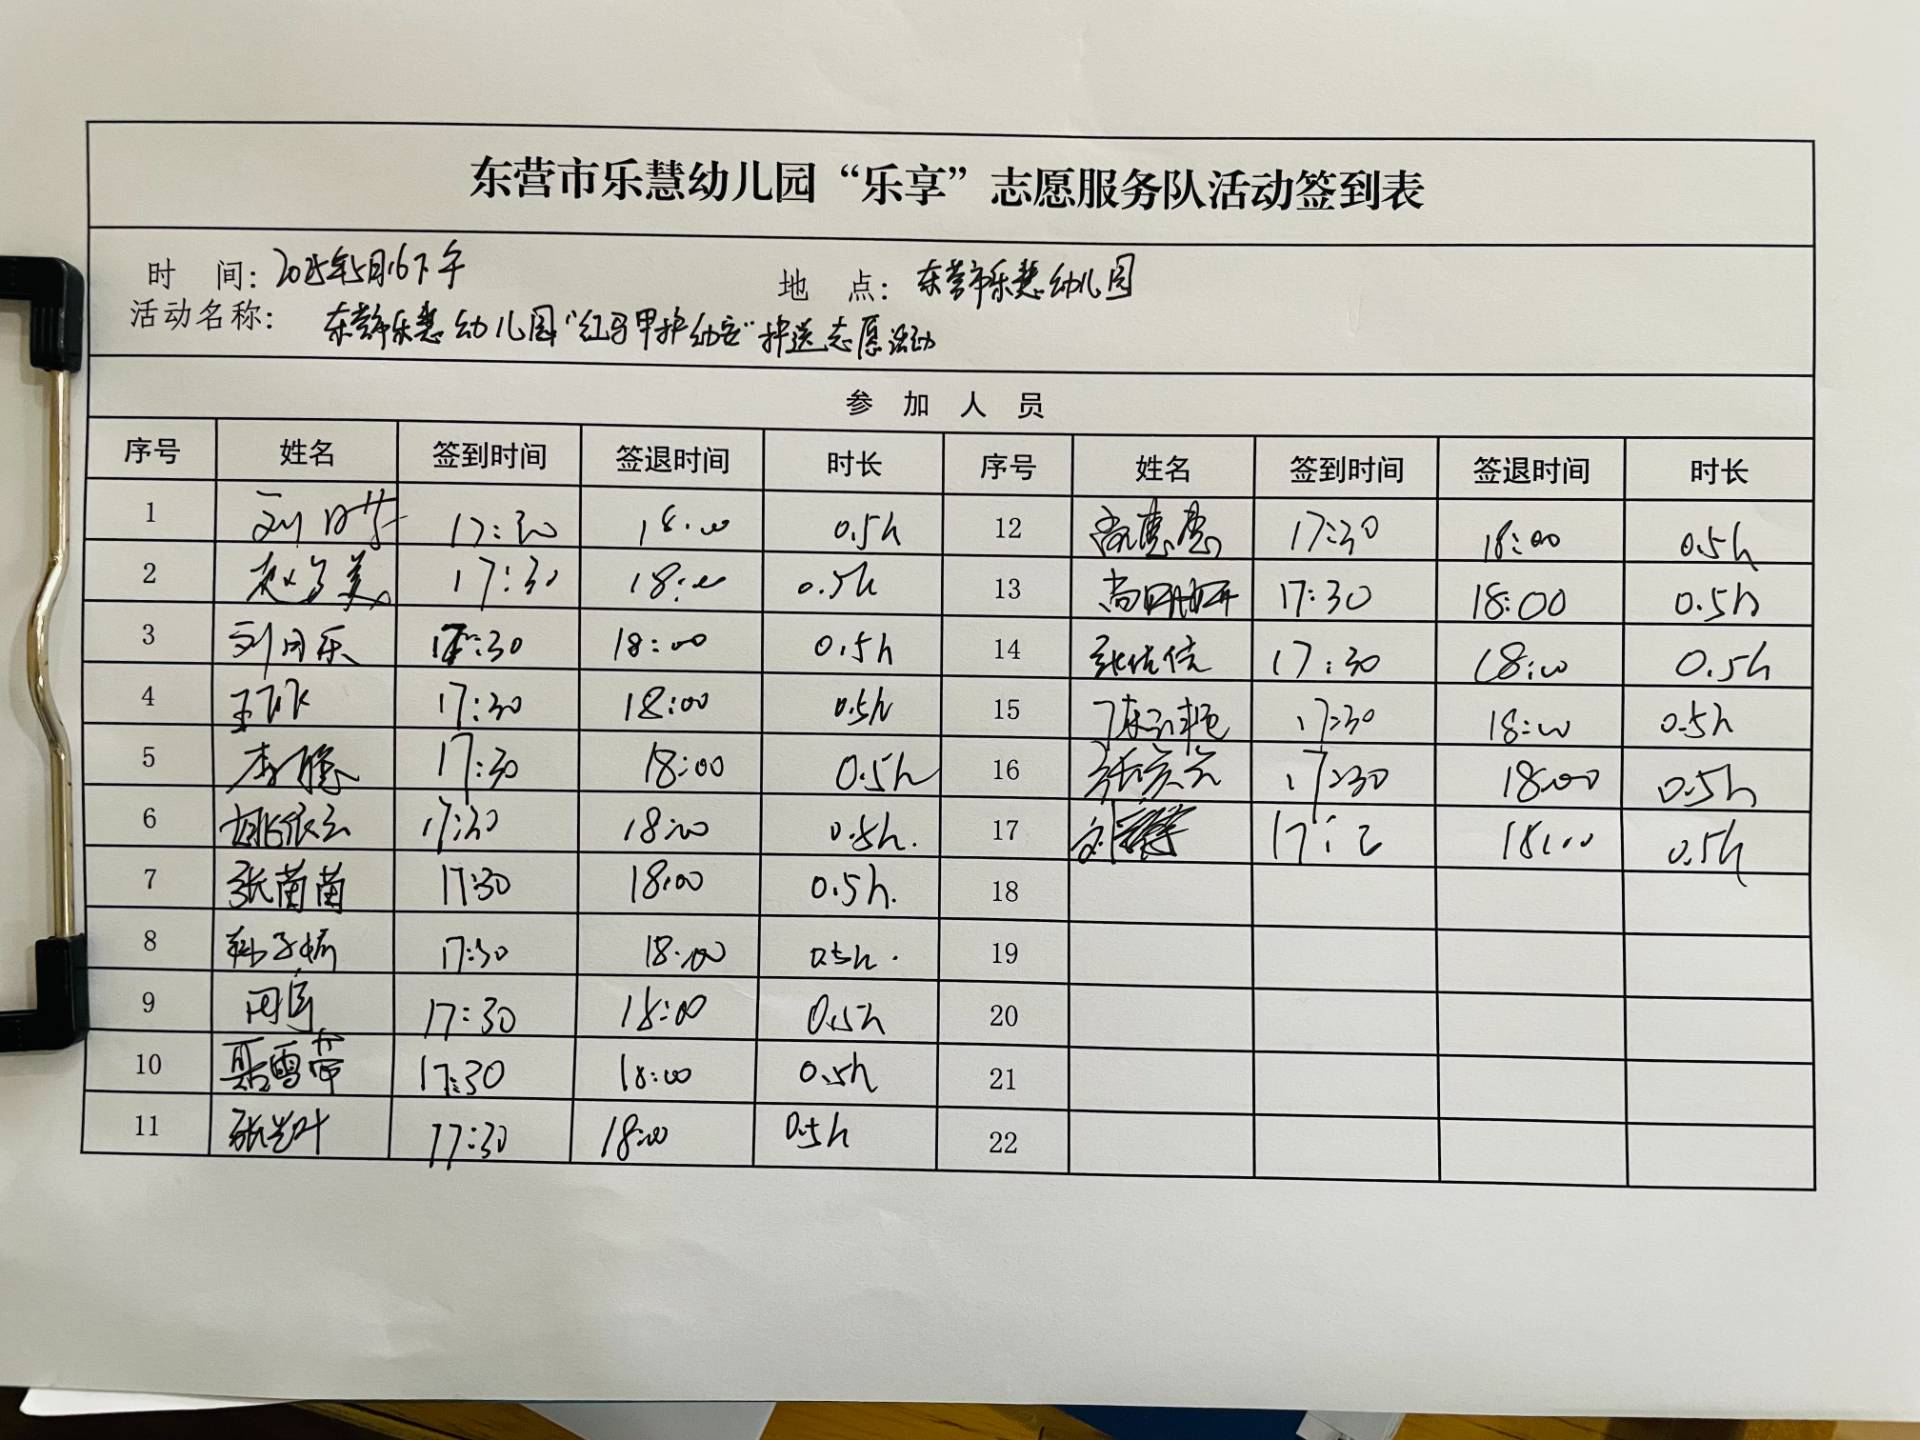 东营市乐慧幼儿园“乐享”志愿服务队活动签到表
时 间: 2025年5月16下午 地 点: 东营市乐慧幼儿园
活动名称: 东营市乐慧幼儿园“红马甲护幼安”护送志愿活动
参 加 人 员
序号 姓名 签到时间 签退时间 时长 序号 姓名 签到时间 签退时间 时长
1 17:30 18:00 0.5h 12 17:30 18:00 0.5h
2 17:30 18:00 0.5h 13 17:30 18:00 0.5h
3 17:30 18:00 0.5h 14 张信信 17:30 18:00 0.5h
4 17:30 18:00 0.5h 15 17:30 18:00 0.5h
5 17:30 18:00 0.5h 16 17:30 18:00 0.5h
6 姚依云 17:30 18:00 0.5h. 17 18:00 0.5h
7 张茵茵 17:30 18:00 0.5h. 18
8 17:30 18:00 0.5h. 19
9 17:30 18:00 0.5h 20
10 17:30 18:00 0.5h 21
11 17:30 18:00 0.5h 22